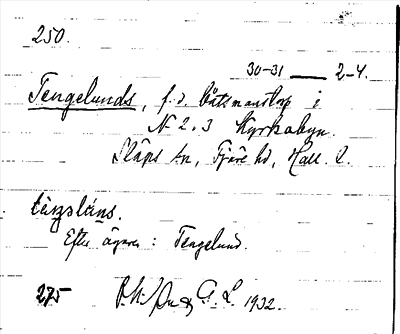 250.
30-31 — 2-4.
Tengelunds, f.d. båtsmanstorp i
N 2, 3 Kyrkobyn.
Släps sn, Fjäre hd, Hall. l.
Efter ägaren: Tengelund.
275 G. L. 1932.